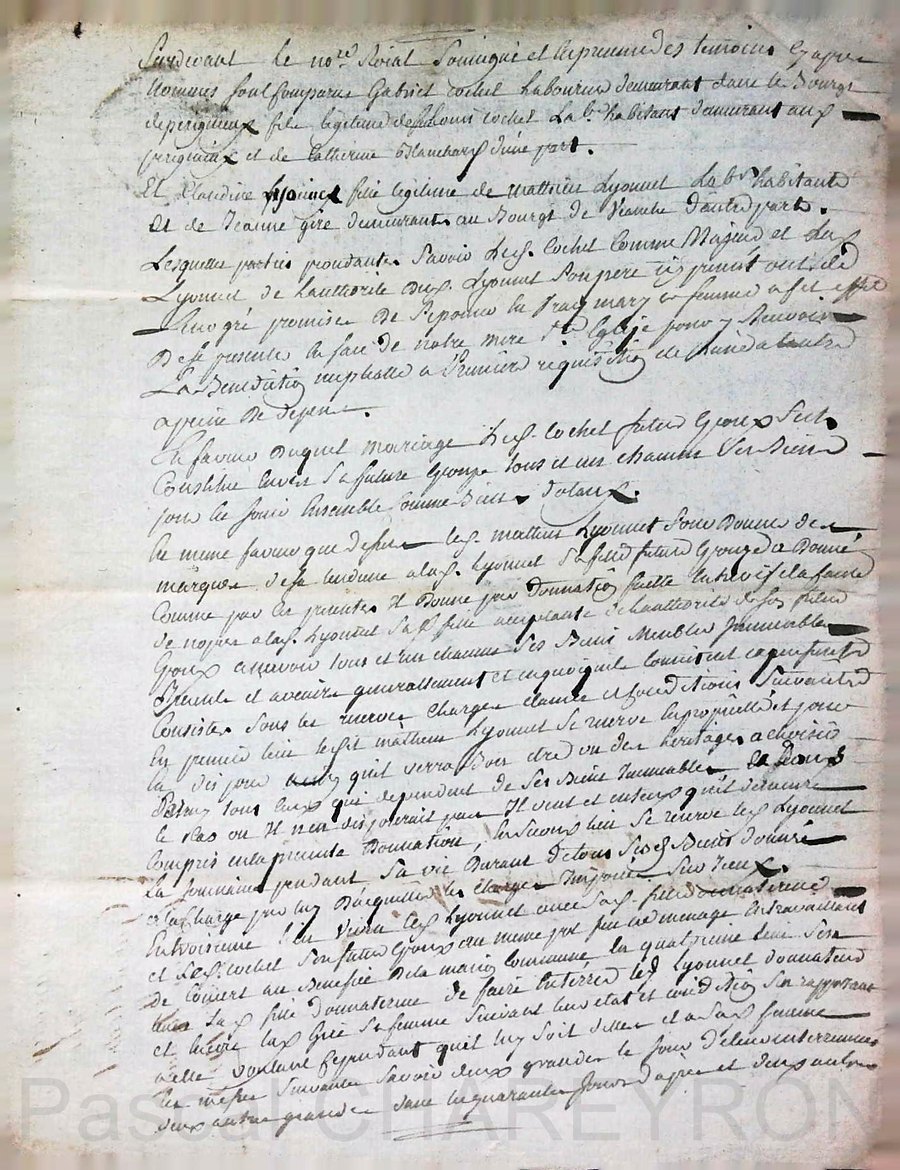 Pardevant le no.re Roial Soussigné et En presence des temoins Cy apres
Nommés sont Comparus Gabriel Cochet Laboureur demeurant dans le Bourg
de perigneux fils legitime de Louis Cochet Lab.r habitant demeurant aux
perigneux et de Catherine Blanchard d'une part.
Et Claudine Lyonnet fille legitime de mathieu Lyonnet Lab.r habitant
et de Jeanne gire demeurants au Bourg de d'autre part.
Lesquelles parties procedantes Savoir Led. Cochet Comme Majeur et La d.
Lyonnet de L'authorité dud. Lyonnet Son pere icy present ont de
Leur gré promis de S'epouser En vray mary et femme a cet effet
De Se presenter En face de notre mere S.te Eglise pour y Recevoir
La Benediction nuptialle a premiere requisition de L'une a L'autre
a peine De depens.
En faveur Duquel mariage Led. Cochet futur Epoux S'est
Constitué Envers Sa future Epouse tous et un chacuns Ses Biens
pour En Jouir Ensemble Comme Biens Dotaux.
En meme faveur que dessus Led. mathieu Lyonnet pour Donner des
marques de sa tendresse a lad. Lyonnet Sa fille future Epouse a Donné
Comme par Ces presentes Il Donne par Donnation faitte Entre vifs et a Cause
de nopces a lad. Lyonnet Sa d. fille acceptante de L'authorité de Son futur
Epoux a Savoir tous et un chacuns Ses Biens Meubles Immeubles
presents et avenirs generallement et en quoi qu'ils Consistent et
Consister Sous les reserves Charges clauses et Conditions Suivantes
En premier lieu Ledit mathieu Lyonnet Se reserve La proprieté et pour
En disposer ainsy qu'il verra Bon etre un des heritages a choisir
Parmy tous Ceux qui dependent de Ses Biens Immeubles et Dans
le Cas ou Il n'en disposerait pas Il veut et entend qu'il demeure
Compris En la presente Donnation, En Second lieu Se reserve led. Lyonnet
La Jouissance pendant Sa vie Durant de tous Ses d. Biens donnés
a La Charge par luy D'acquitter les charges Imposées Sur Iceux.
En troisieme lieu vivra led. Lyonnet avec Sa d. fille donnataire
et Led. Cochet Son futur Epoux au meme pot feu et menage En travaillant
de Concert au Benefice De la maison Commune En quatrieme lieu Sera
tenue La d. fille donnataire de faire Enterrer led. Lyonnet donnateur
et Encore lad. Gire Sa femme Suivant leur etat et Condition S'en rapportant
a elle voulant Cependant qu'il luy Soit dittes et a Sa d. femme
les messes Suivantes Savoir deux grandes le Jour de leurs enterrements
deux autres grandes dans la quarantaine Jours d'apres et deux autres
Pascal CHAREYRON